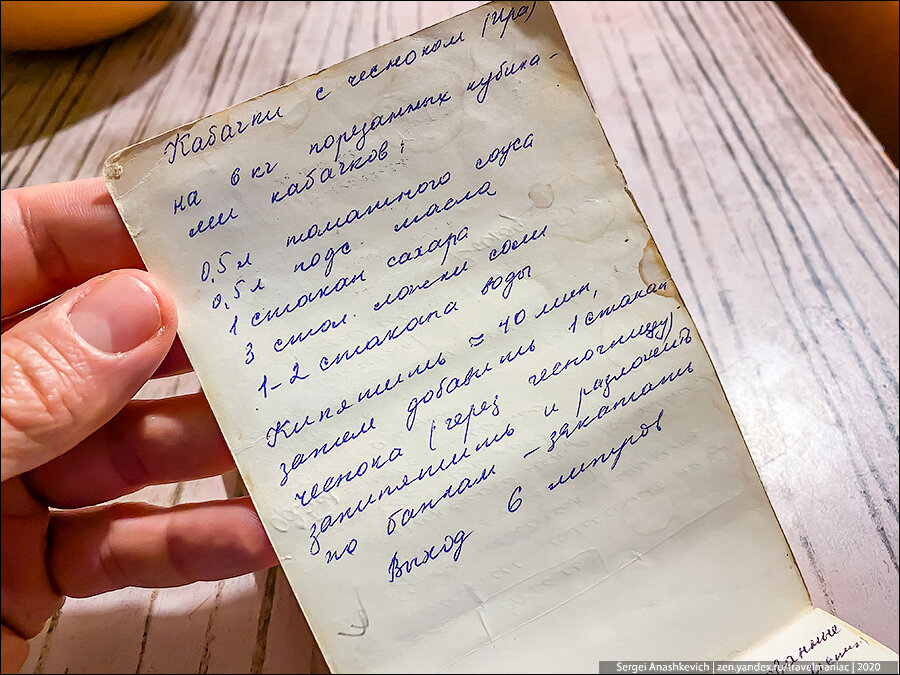 Кабачки с чесноком (Ира)
на 6 кг порезанных кубика-
ми кабачков:
0,5 л томатного соуса
0,5 л подс. масла
1 стакан сахара
3 стол. ложки соли
1-2 стакана воды
Кипятить ≈ 40 мин,
затем добавить 1 стакан
чеснока (через чесночницу).
Закипятить и разложить
по банкам - закатать
Выход 6 литров
Sergei Anashkevich | zen.yandex.ru/travelmaniac | 2020